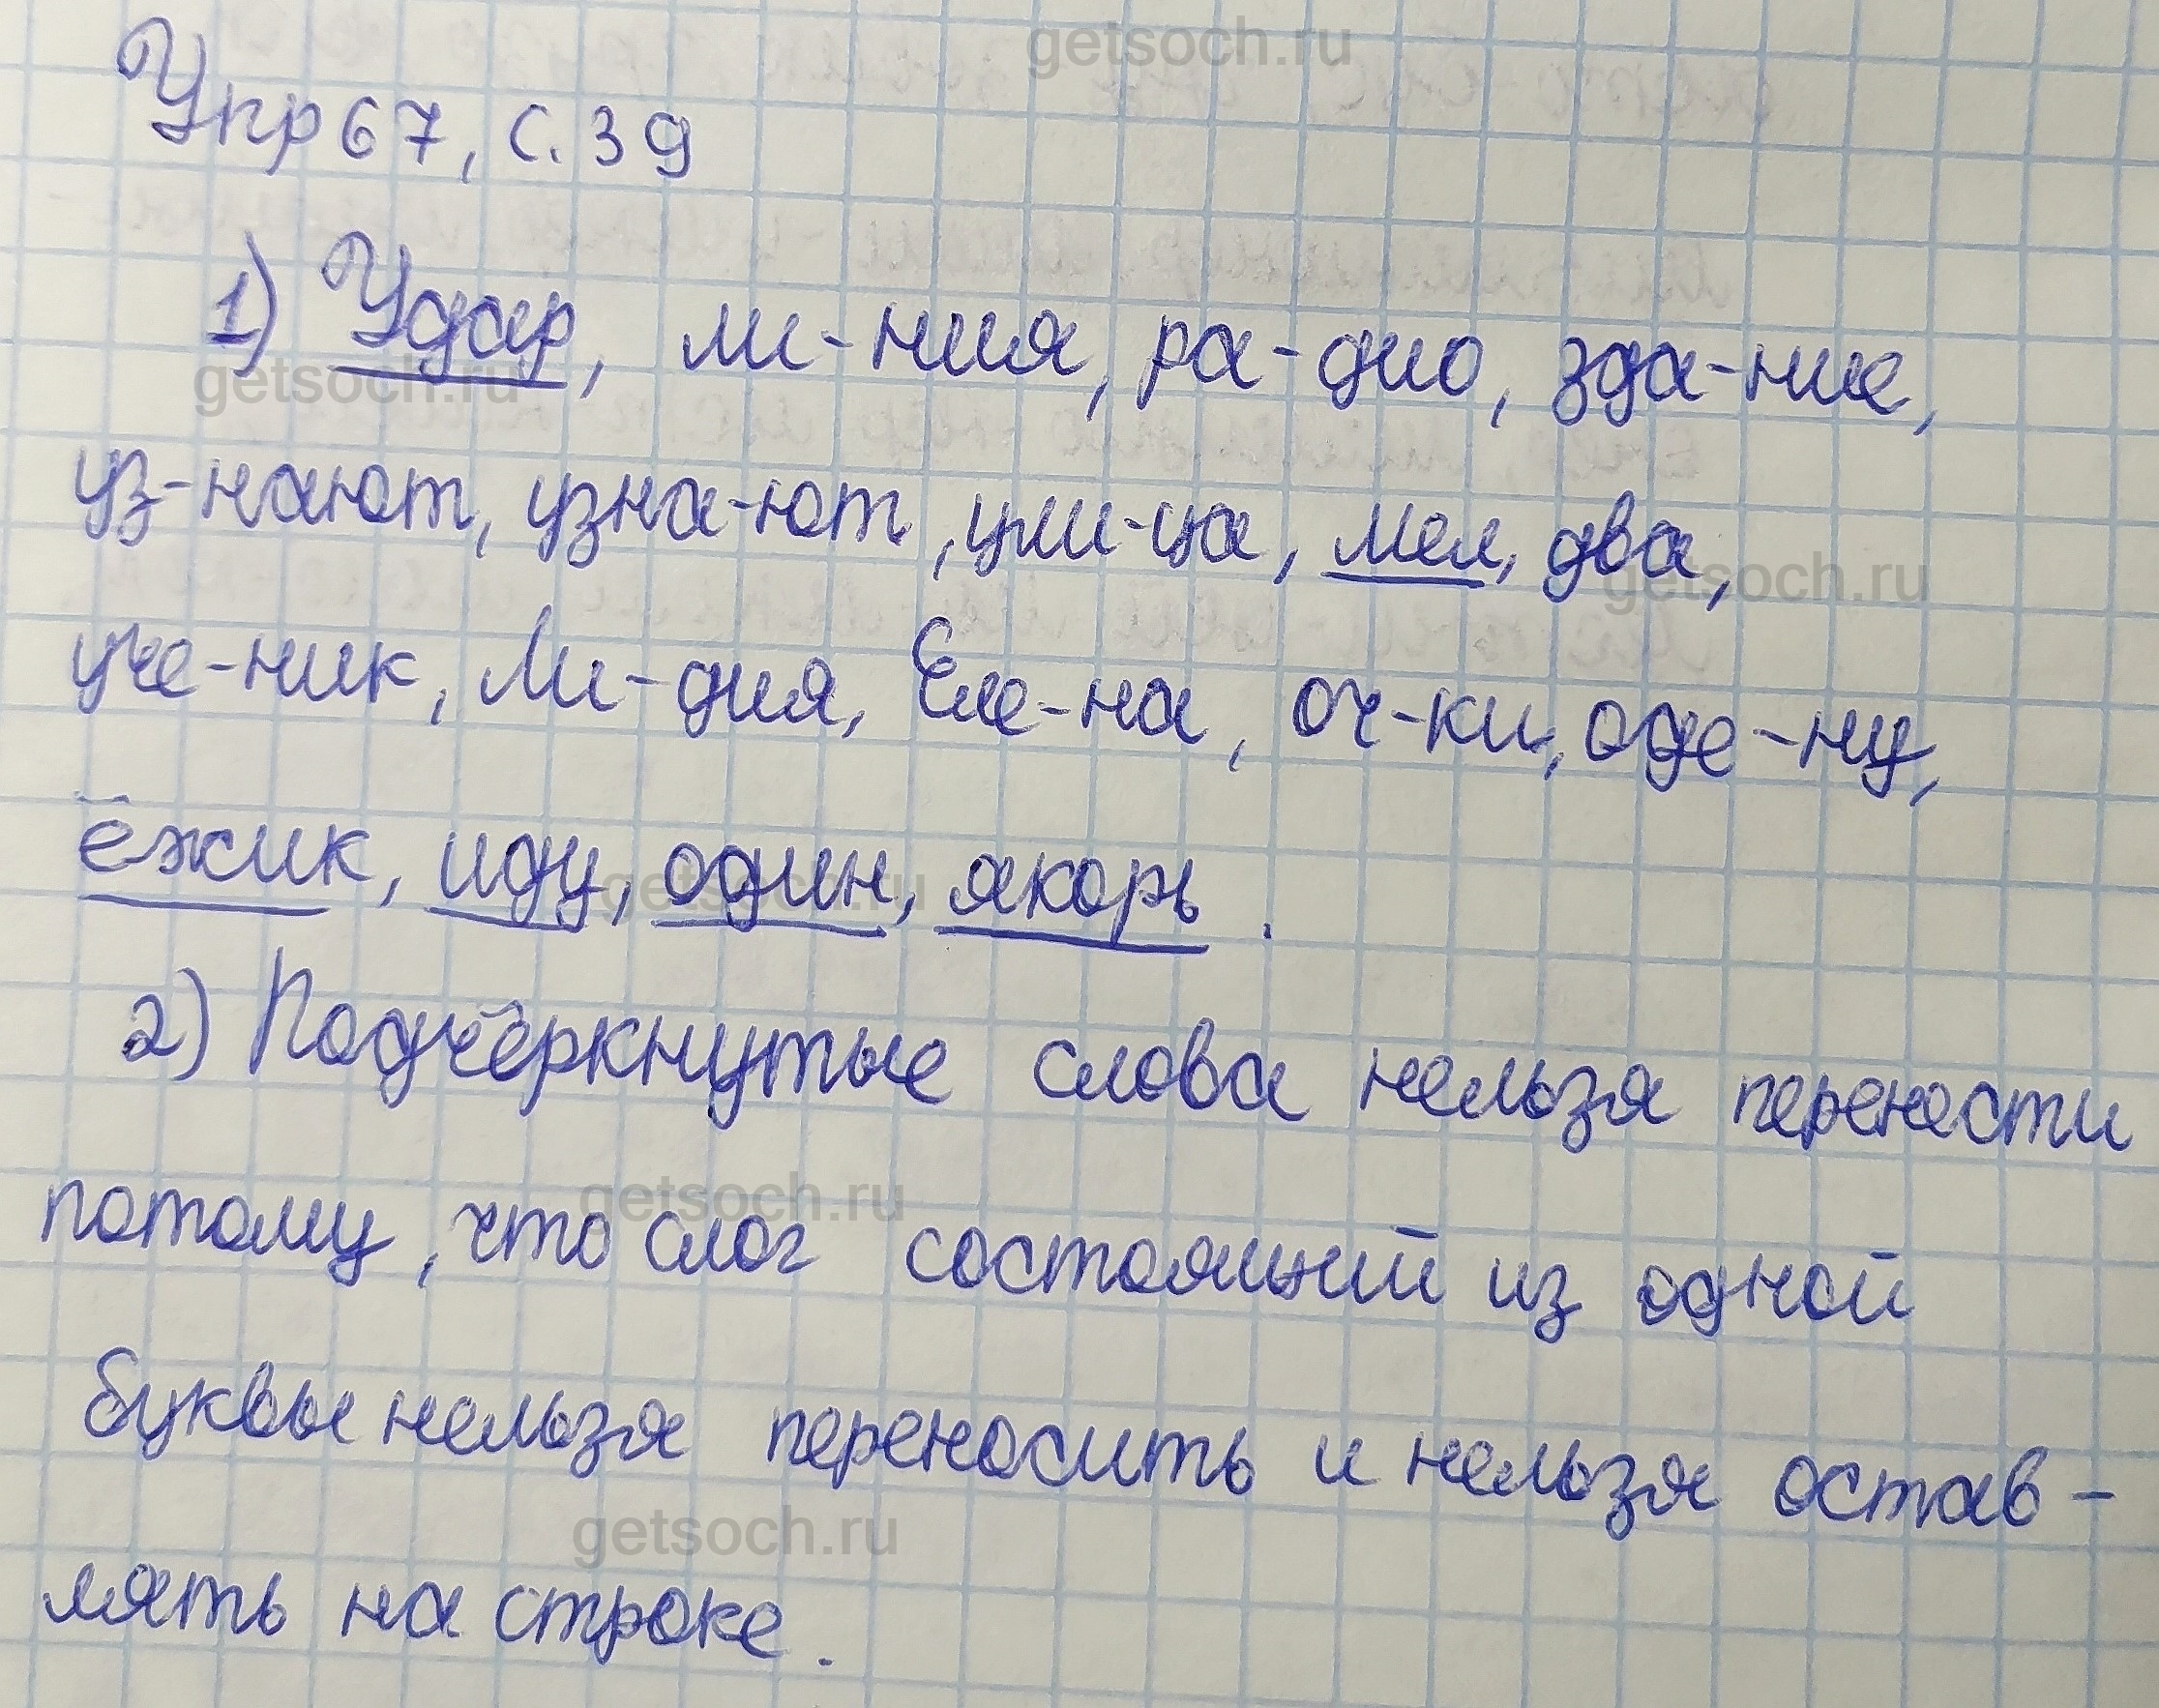 getsoch.ru
Упр 67, с. 39
1) Удар, ли-ния, ра-дио, зда-ние,
getsoch.ru
уз-нают, узна-ют, ули-ца, мел, два,
getsoch.ru
уче-ник, Ли-дия, Еле-на, оч-ки, оде-ну,
ёжик, иду, один, якорь.
getsoch.ru
2) Подчёркнутые слова нельзя перенести
потому, что слог состоящий из одной
getsoch.ru
буквы нельзя переносить и нельзя остав-
getsoch.ru
лять на строке.